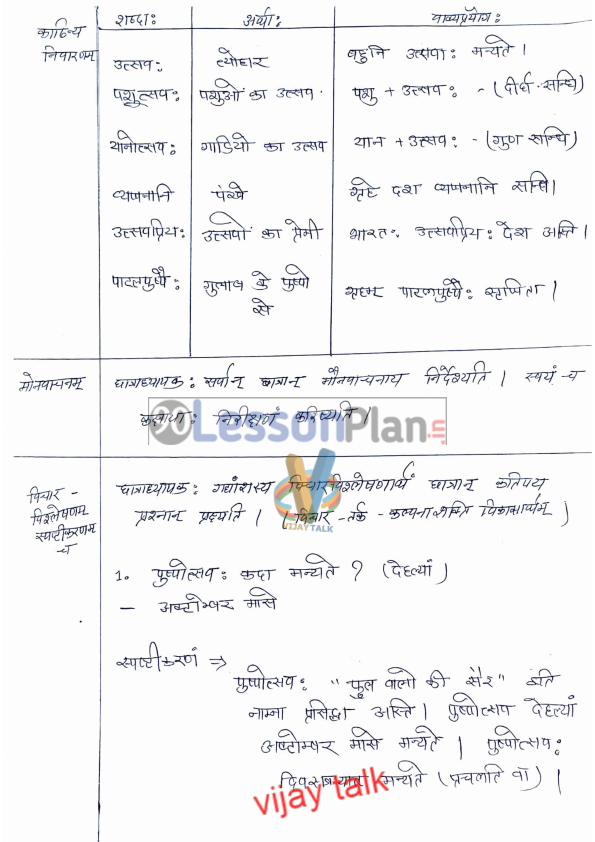 शब्दाः अर्थाः वाक्यप्रयोगः
काठिन्य
निवारणम्
उत्सवः त्योहार बहुनि उत्सवाः मन्यते ।
पशुत्सवः पशुओं का उत्सव पशु + उत्सवः - (दीर्घ सन्धि)
यानोत्सवः गाडियो का उत्सव यान + उत्सवः - (गुण सन्धि)
व्यणनानि पंखे गृहे दश व्यणनानि सन्धि।
उत्सवप्रियः उत्सवों का प्रेमी भारतः उत्सवप्रियः देश अस्ति ।
पाटलपुष्पैः गुलाब के पुष्पो
से
पाटलपुष्पैः
मौनवाचनम् छात्राध्यापकः सर्वान् छात्रान् मौनवाचनाय निर्देश्यति । स्वयं च
कक्षायाः निरीक्षणं करिष्यति ।
LessonPlan.in
विचार -
विश्लेषणम्
स्पष्टीकरणम्
च
छात्राध्यापकः गद्यांशस्य विचारविश्लेषणार्थं छात्रान् कतिपय
प्रश्नान् प्रक्ष्यति । (विचार - तर्क - कल्पना शक्ति विकासार्थम्)
VIJAY TALK
1. पुष्पोत्सवः कदा मन्यते ? (देहल्यां)
- अक्टोम्बर मासे
स्पष्टीकरणं ⇒
पुष्पोत्सवः "फुल वालो की सैर" इति
नाम्ना प्रसिद्धा अस्ति । पुष्पोत्सव देहल्यां
अक्टोम्बर मासे मन्यते । पुष्पोत्सवः
मन्यते (प्रचलति वा) ।
vijay talk